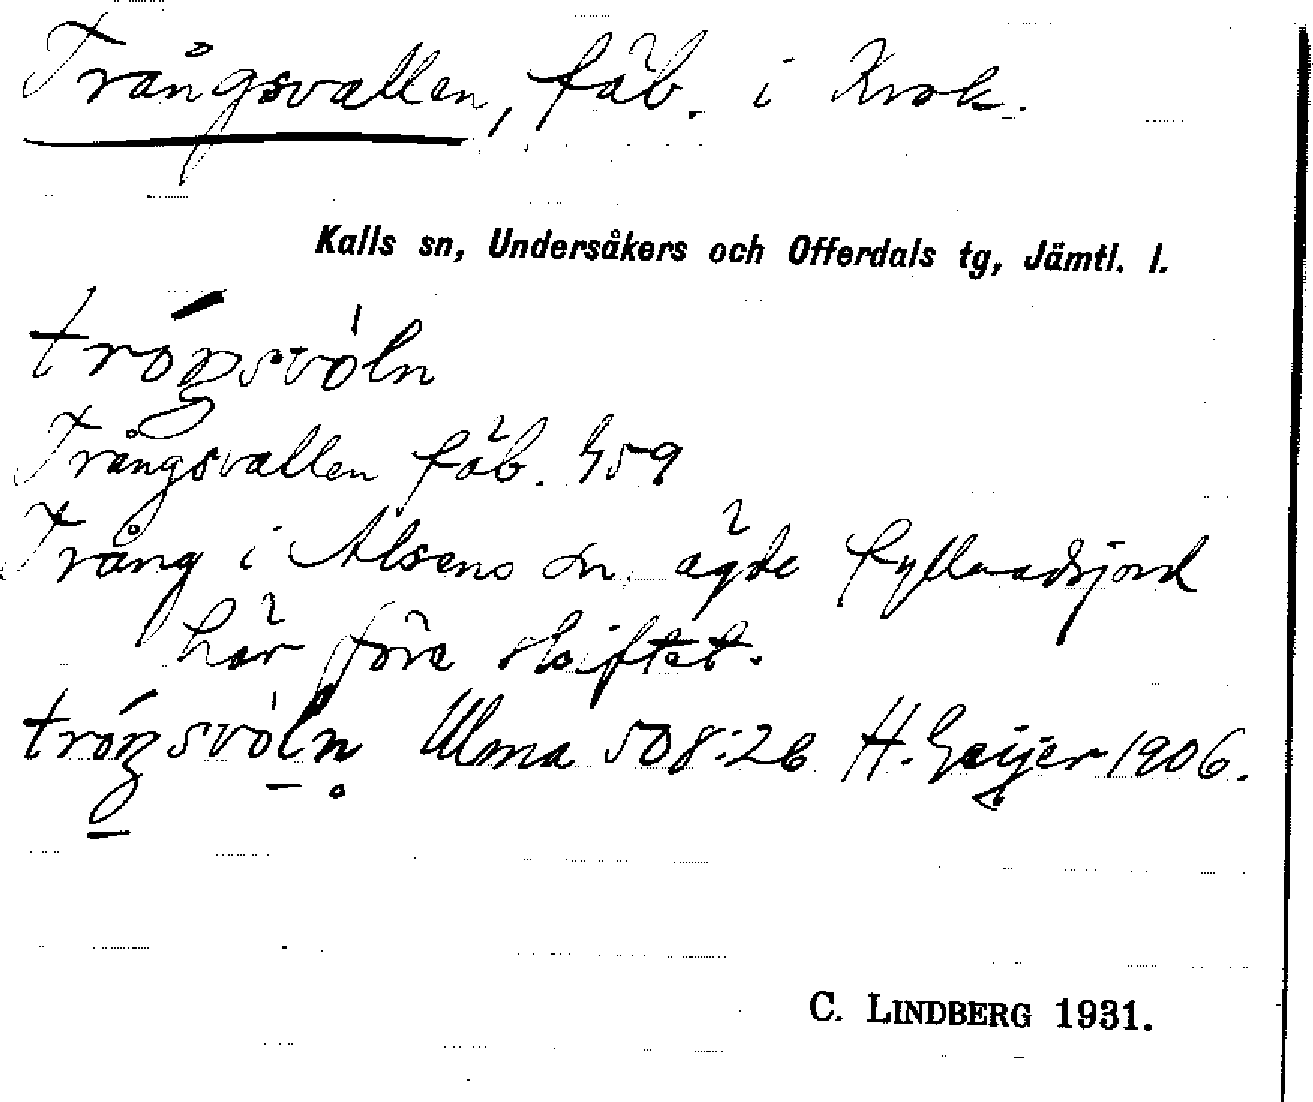 Trångsvallen, fäb. i Krok.
Kalls sn, Undersåkers och Offerdals tg, Jämtl. l.
tróŋsvòln
Trångsvallen fäb. 459
Trång i Alsens sn ägde fyllnadsjord
här före skiftet.
tróŋsvòln̥ Ulma 508:26 H. Geijer 1906.
C. LINDBERG 1931.